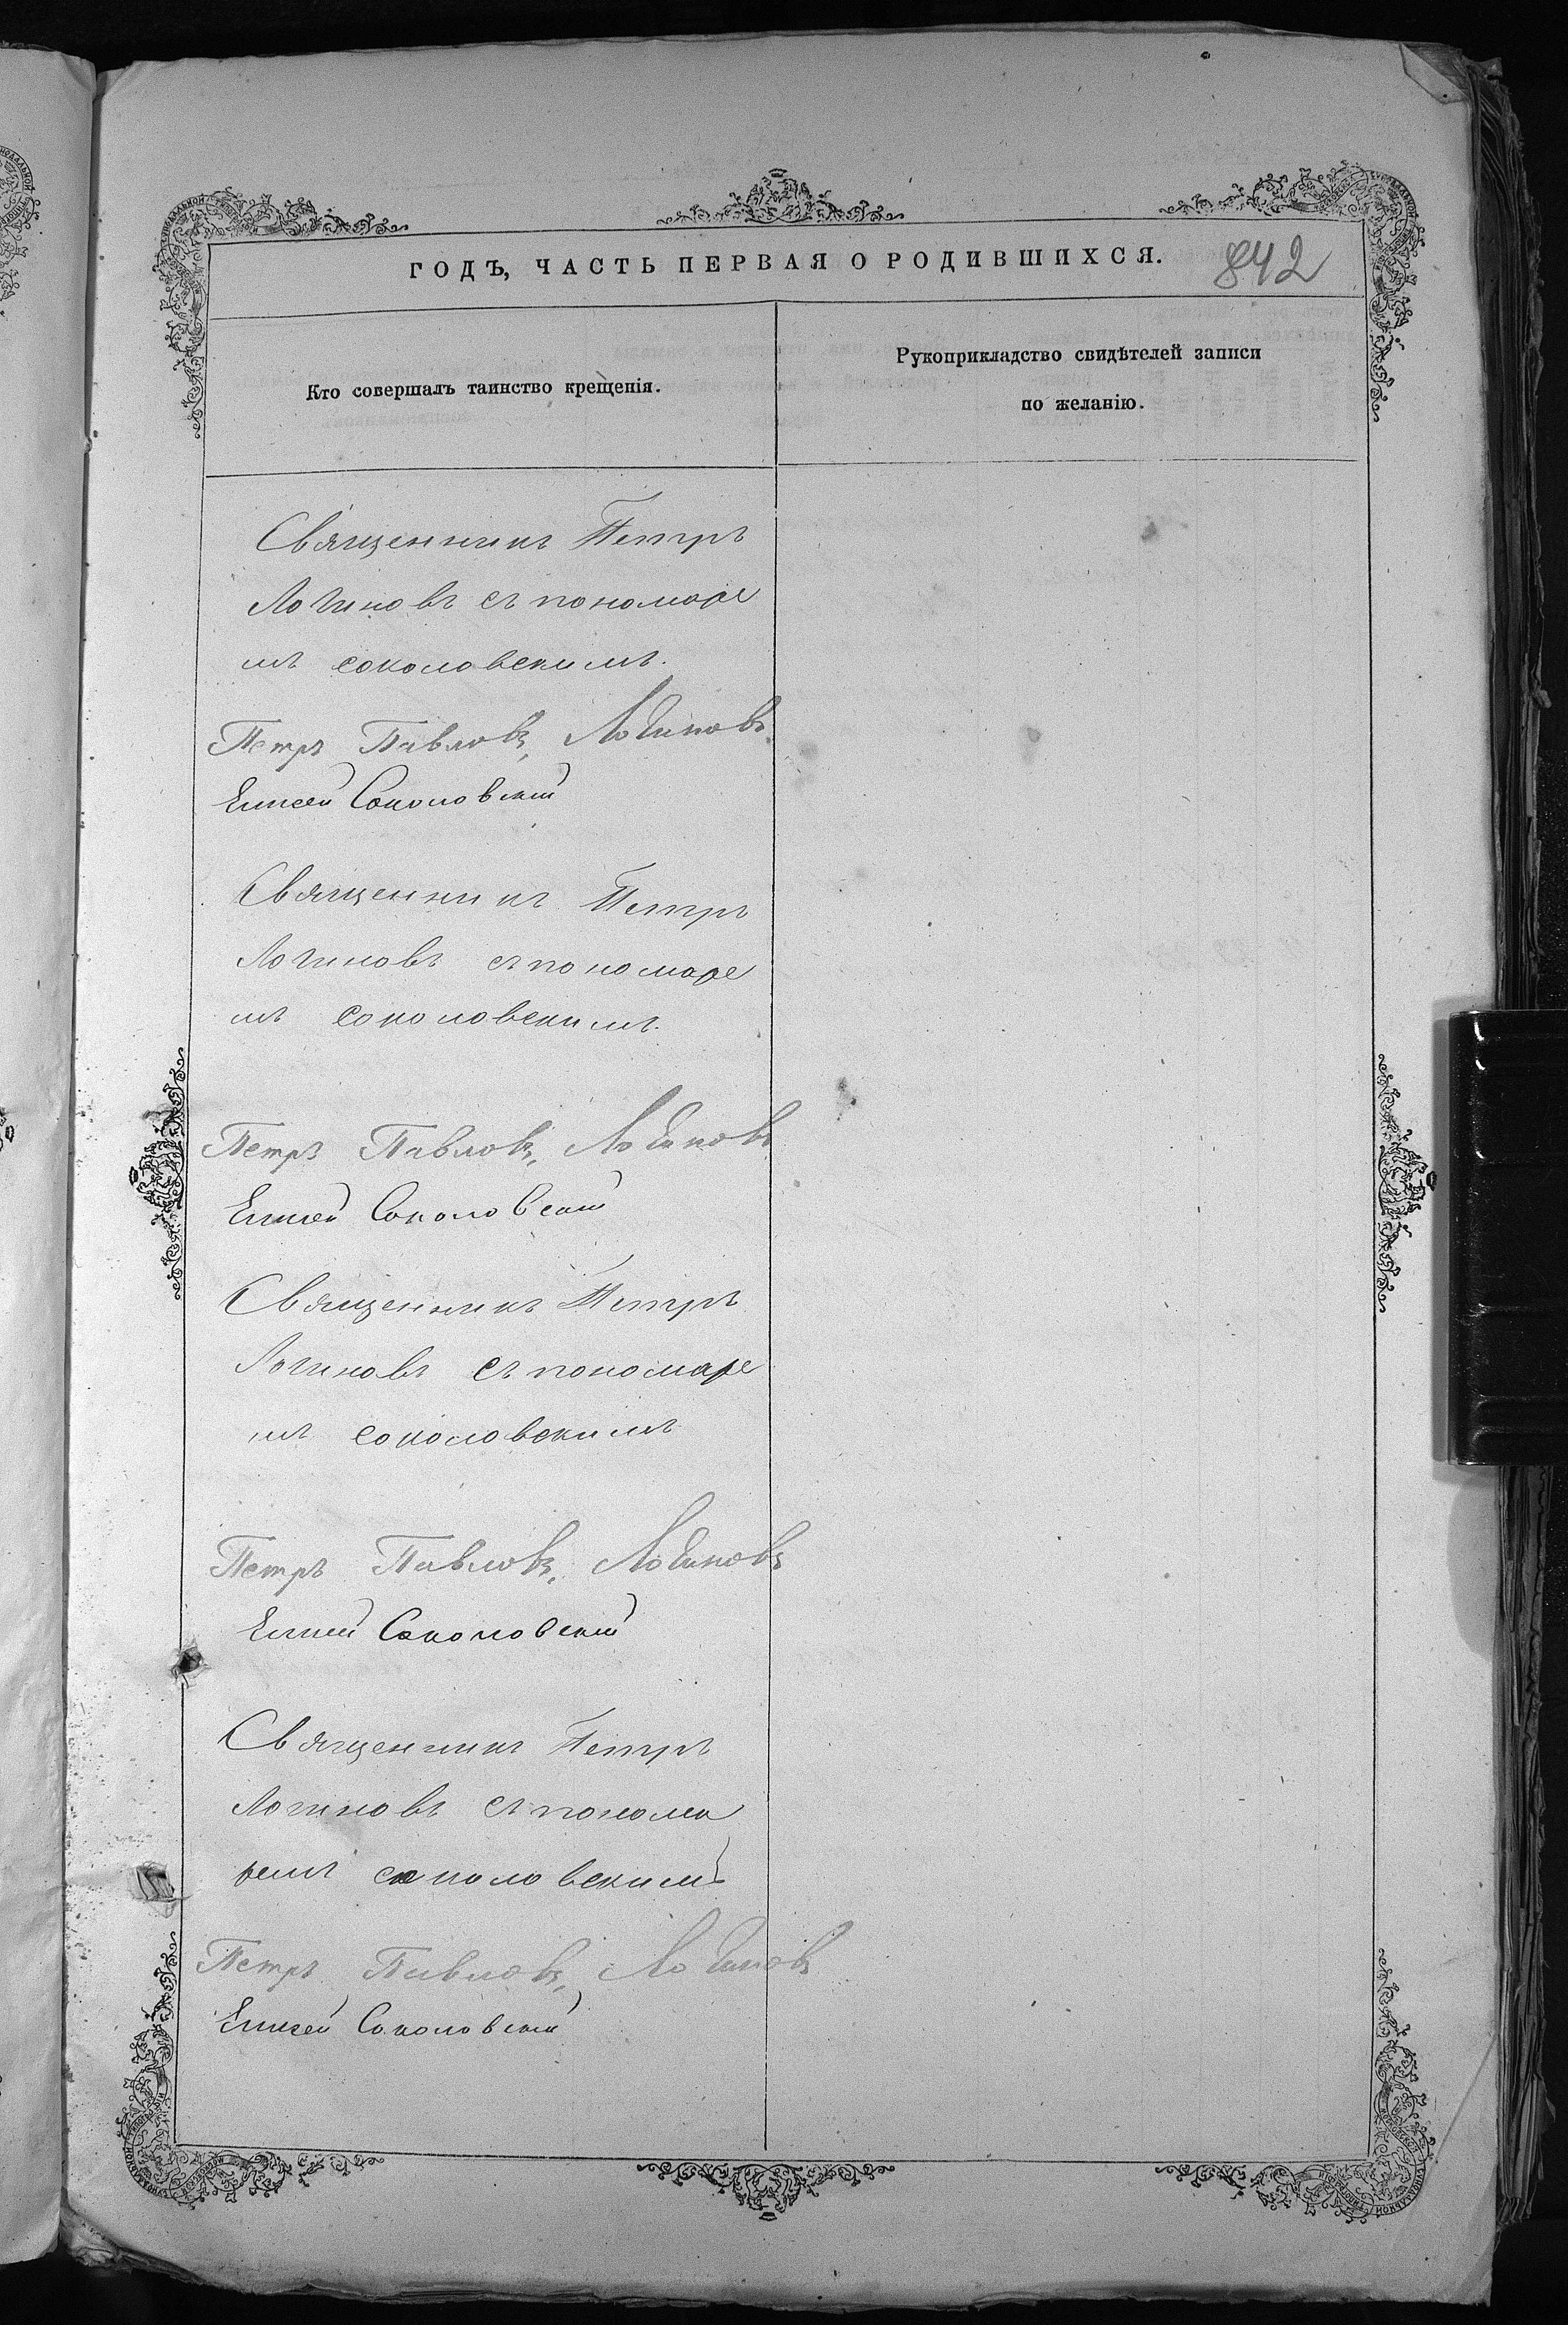 ГОДЪ, ЧАСТЬ ПЕРВАЯ О РОДИВШИХСЯ. 842
Кто совершалъ таинство крещенія.
Рукоприкладство свидѣтелей записи
по желанію.
Священникъ Петръ
Логиновъ съ пономаре
мъ соколовскимъ.
Петръ Павловъ, Логиновъ
Елисей Соколовскій
Священникъ Петръ
Логиновъ съ пономаре
мъ соколовскимъ.
Петръ Павловъ, Логиновъ
Елисей Соколовскій
Священникъ Петръ
Логиновъ съ пономаре
мъ соколовскимъ
Петръ Павловъ, Логиновъ
Елисей Соколовскій
Священникъ Петръ
Логиновъ съ понома
ремъ соколовскимъ
Петръ Павловъ, Логиновъ
Елисей Соколовскій